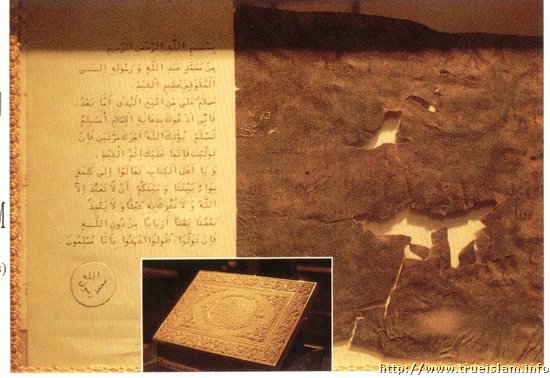 بِسْمِ اللَّهِ الرَّحْمَنِ الرَّحِيمِ
مِنْ مُحَمَّدٍ عَبْدِ اللَّهِ وَ رَسُولِهِ إِلَى
الْمُقَوْقِسِ عَظِيمِ الْقِبْطِ.
سَلَامٌ عَلَى مَنِ اتَّبَعَ الْهُدَى أَمَّا بَعْدُ..
فَإِنِّي أَدْعُوكَ بِدِعَايَةِ الْإِسْلَامِ أَسْلِمْ
تَسْلَمْ يُؤْتِكَ اللَّهُ أَجْرَكَ مَرَّتَيْنِ فَإِنْ
تَوَلَّيْتَ فَإِنَّمَا عَلَيْكَ إِثْمُ الْقِبْطِ
وَ يَا أَهْلَ الْكِتَابِ تَعَالَوْا إِلَى كَلِمَةٍ
سَوَاءٍ بَيْنَنَا وَ بَيْنَكُمْ أَنْ لَا نَعْبُدَ إِلَّا
اللَّهَ وَ لَا نُشْرِكَ بِهِ شَيْئًا وَ لَا يَتَّخِذَ
بَعْضُنَا بَعْضًا أَرْبَابًا مِنْ دُونِ اللَّهِ
فَإِنْ تَوَلَّوْا فَقُولُوا اشْهَدُوا بِأَنَّا مُسْلِمُونَ
الله
رسول
محمد
M
s)
http://www.trueislam.info